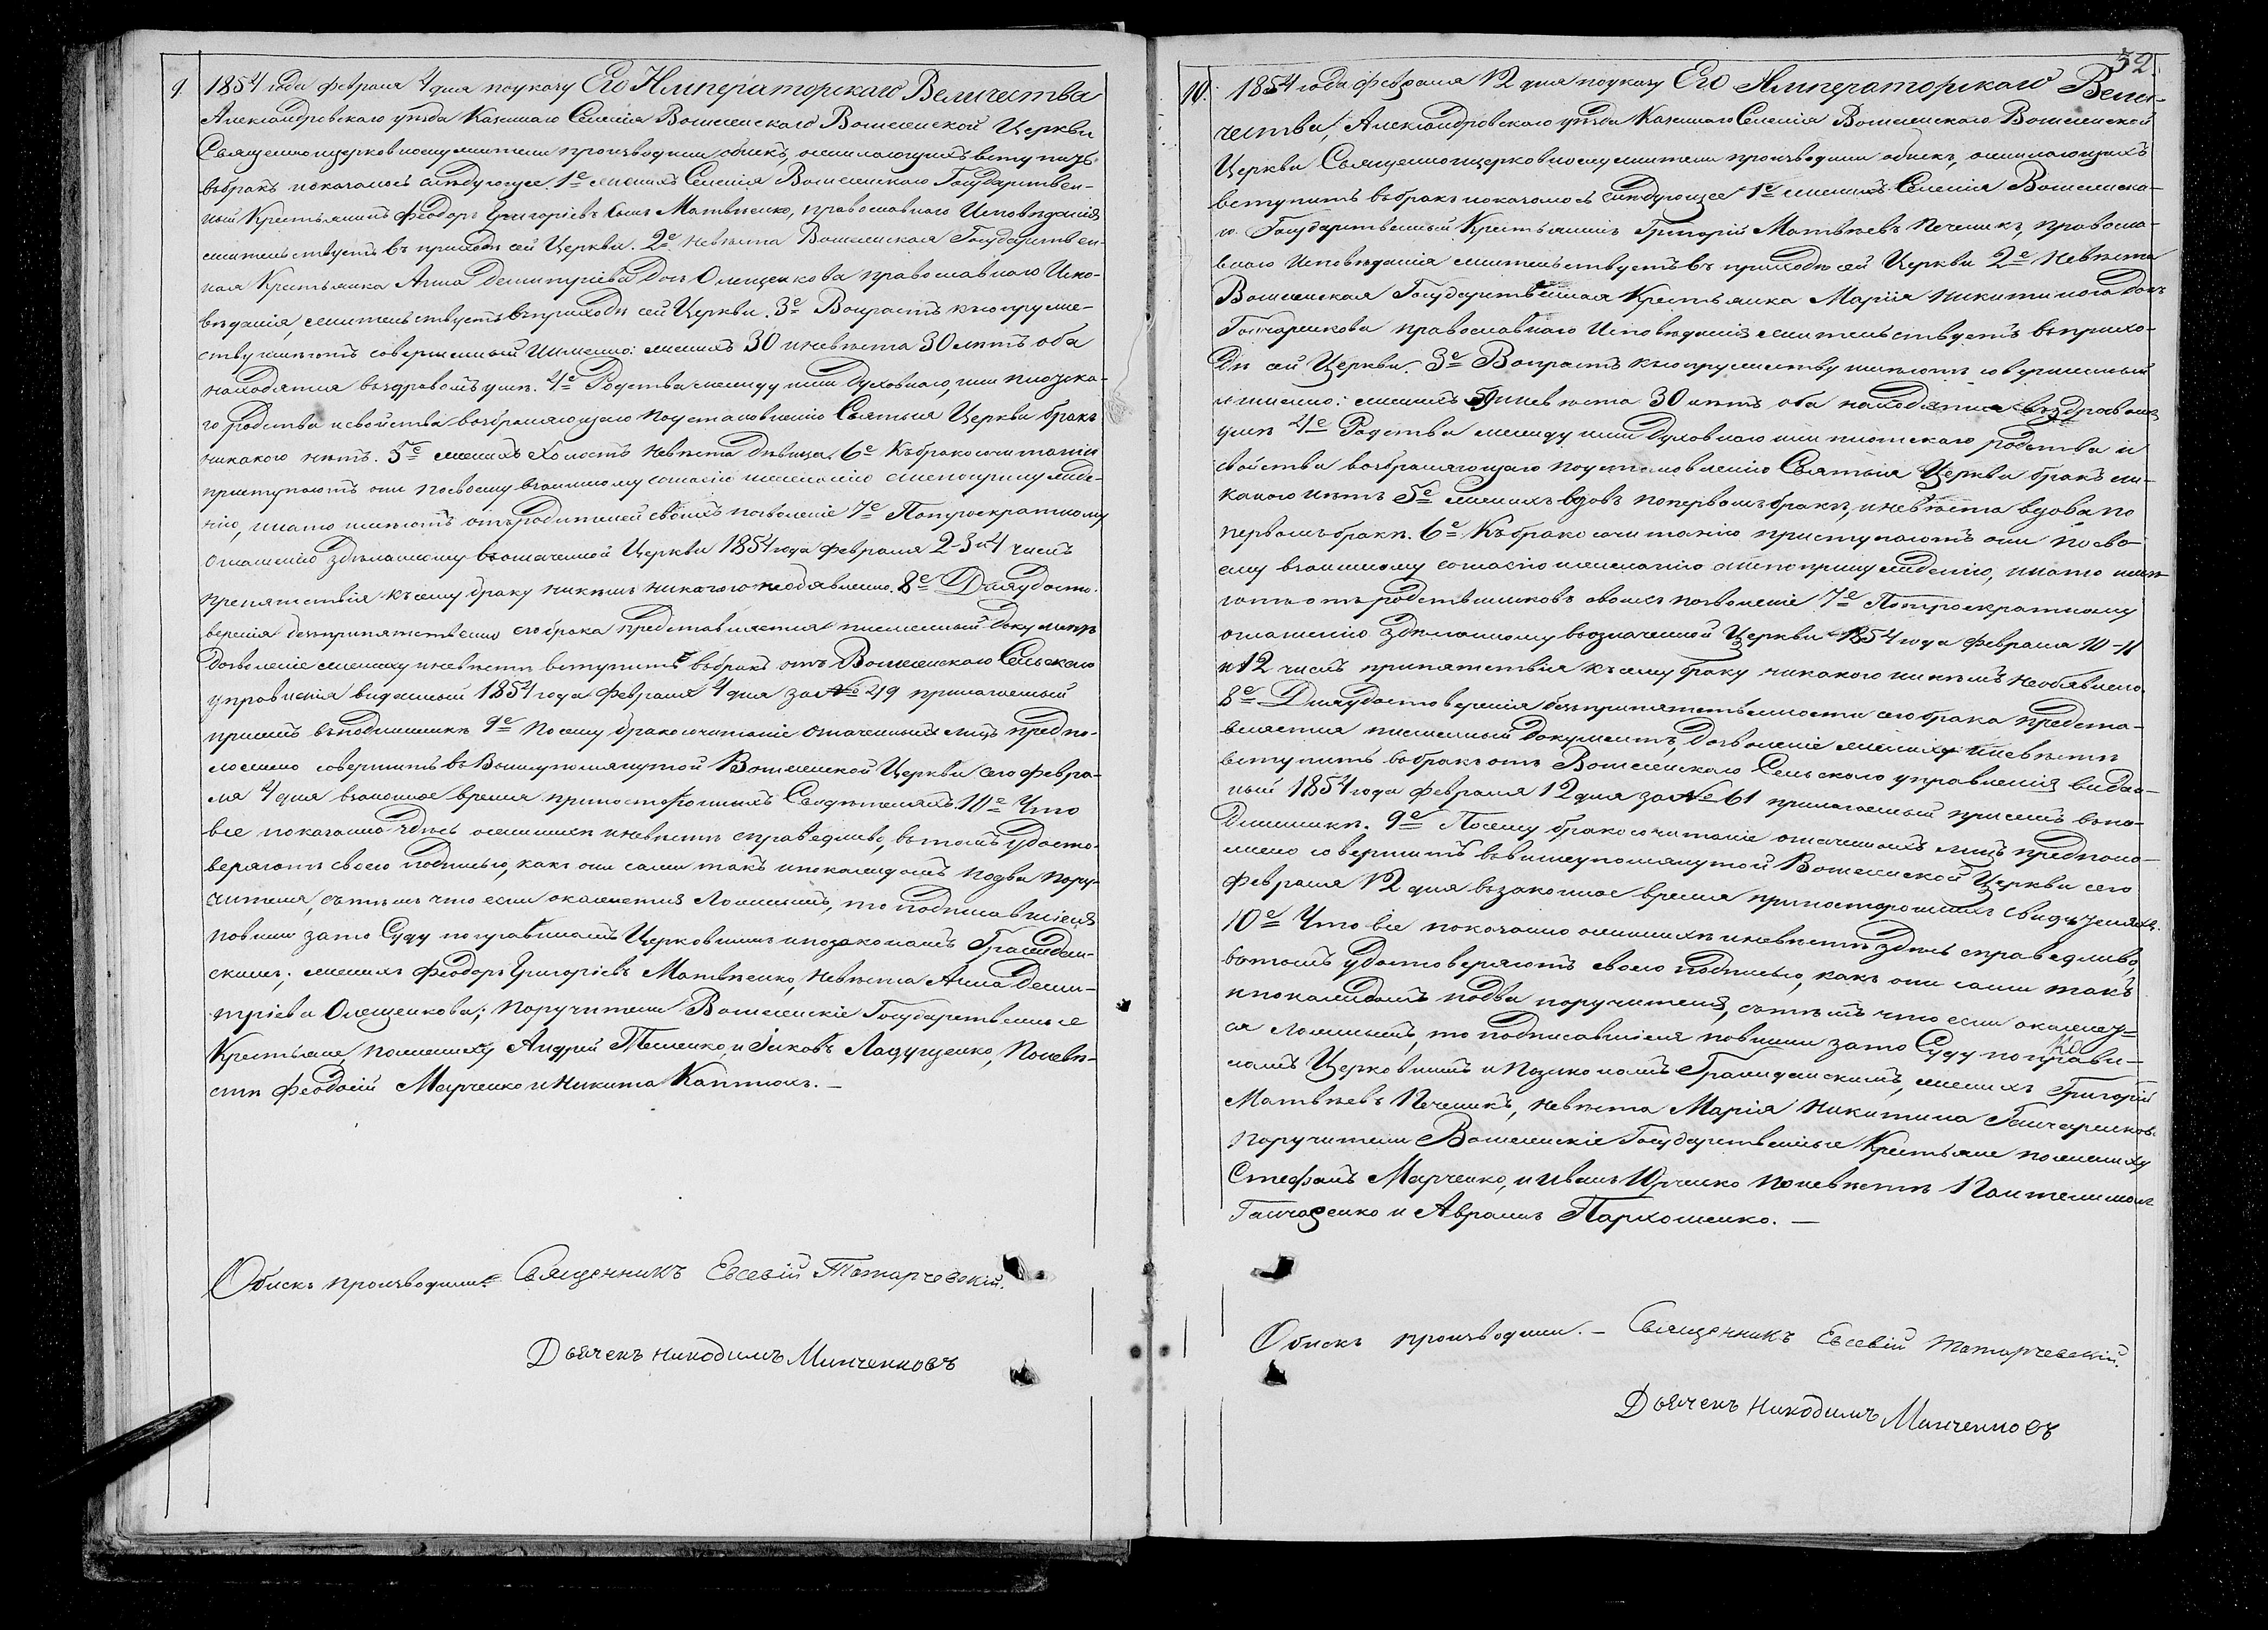 9. 1854 года февраля 4 дня поуказу Его Императорскаго Величества
Александровскаго уѣзда Казеннаго Селенія Вошеенскаго Вошеенской Церкви
Священноцерковнослужители производили обыскъ, ожелающихъ вступить
вбракъ ипоказалось слѣдующее 1е женихъ Селенія Государствен-
ный Крестьянинъ Феодоръ Григоріевъ сынъ Матвѣенко, православнаго Исповѣданія
жительствуетъ въ приходѣ сей Церкви. 2е Невѣста Государствен-
ная Крестьянка Анна Демитріева дочь Олещенкова православнаго Испо-
вѣданія, жительствуетъ въприходѣ сей Церкви. 3е Возрастъ ксопруже-
ству имѣютъ совершенный Именно: женихъ 30 иневѣста 30 лѣтъ оба
находятся въздравомъ умѣ. 4е Родства между ими Духовнаго, или плотска-
го родства исвойства возбраняющаго поустановленію Святыя Церкви бракъ
никакого нѣтъ. 5е женихъ холостъ Невѣста дѣвица. 6е Къбракосочитанію
приступаютъ они посвоему взаимному согласію ижеланію анепопринужде-
нію, инато имѣютъ отъродителей своихъ позволеніе 7е Потроекратному
оглашенію здѣланному възначенной Церкви 1854 года февраля 2-3 и 4 числъ
препятствія късему браку никѣмъ никагого необявлено. 8е Дляудосто-
веренія безпрепятственно сегобрака представляется писменный документъ
Дозволеніе жениху иневѣсте вступить вбракъ отъ Сельскаго
управленія виданный 1854 года февраля 4 дня за № 49 прилагаемый
присемъ въподлинникѣ 9е Посему бракосочитаніе Означенныхъ лицъ предпо-
ложено совершить въ Вышеупомянутой Церкви сего февра-
ля 4 дня взаконное время припостороннихъ Свидѣтеляхъ. 10е Что
все показанно здѣсь ожинихѣ иневѣсте справедливо, втомъ удосто-
веряютъ своею подписью, какъ они сами такъ ипокаждомъ подва пору-
чителя, сътѣмъ что если окажется Ложнымъ, то подписавшіеся
повинни зато Суду поправиламъ Церковнымъ ипозаконамъ Граждан-
скимъ; женихъ Феодоръ Григоріевъ Матвѣенко, Невѣста Анна Деми-
тріева Олещенкова; Поручители Государственные
Крестьяне, пожениху Андрей Тесленко, и Іяковъ Ладущенко, Поневѣ-
стѣ Феодосій Марченко и Никита Каптюхъ. —
Обыскъ производили: Священникъ Евсевій Татарчевскій.
Дьячекъ Никодимъ Минченковъ
32.
10. 1854 года февраля 12 дня поуказу Его Императорскаго Вели-
чества, Александровскаго уѣзда Казеннаго Селенія Вошеенскаго Вошеенской
Церкви Священноцерковнослужители производили обыскъ, ожелающихъ
вступить вбракъ ипоказалось слѣдующее 1е женихъ Селенія
го Государственный Крестьянинъ Григорій Матвѣевъ Печеникъ, правосла-
внаго Исповѣданія жительствуетъ въ приходѣ сей Церкви 2е Невѣста
Государственная Крестьянка Марія Никитинова дочь
Ганчаренкова православнаго Исповѣданія жительствуетъ въприхо-
дѣ сей Церкви. 3е Возрастъ ксопружеству имѣютъ совершенный
именно: женихъ иневѣста 30 лѣтъ оба находятся въздравомъ
умѣ 4е Родства между ими Духовнаго или плотскаго родства и
свойства возбраняющаго поустановленію Святыя Церкви бракъ ни-
какого нѣтъ 5е женихъ вдовъ попервомъ бракѣ, иневѣста вдова по
первомъ бракѣ. 6е Къбракосочитанію приступаютъ они посво-
ему взаимному согласію ижеланію анепопринужденію, инато имѣ-
ютъ отъ родственниковъ своихъ позволеніе 7е Потроекратному
оглашенію здѣланному възначенной Церкви 1854 года февраля 10-11
и 12 числъ припятствія късему браку никакого никѣмъ необявлено.
8е Дляудостоверенія безприпятственности сегобрака предста-
вляется писменный документъ, Дозволеніе жениху иневѣсте
вступить вбракъ отъ Сельскаго управленія видан-
ный 1854 года февраля 12 дня за № 61 прилагаемый присемъ въпо-
длинникѣ. 9е Посему бракосочитаніе означенныхъ лицъ предполо-
жено совершить въвышеупомянутой Церкви сего
февраля 12 дня взаконное время припостороннихъ свидѣтеляхъ.
10е Что все показанно ожинихѣ иневѣсте здѣсь справедливо,
вътомъ удостоверяютъ своею подписью, какъ они сами такъ
ипокаждомъ подва поручителя, сътѣмъ что если окажет-
ся ложнымъ, то подписавшіеся повинни зато Суду поправи-
ламъ Церковнымъ и Позаконамъ Гражданскимъ, женихъ Григорій
Матвѣевъ Печеникъ, Невѣста Марія Никитина Ганчаренкова
Поручители Государственные Крестьяне пожениху
Стефанъ Марченко, и Иванъ Юрченко поневѣстѣ Пантелимонъ
Ганчаренко и Аврамъ Пархоменко. —
Обыскъ производили. — Священникъ Евсевій Татарчевскій.
Дьячекъ Никодимъ Минченковъ